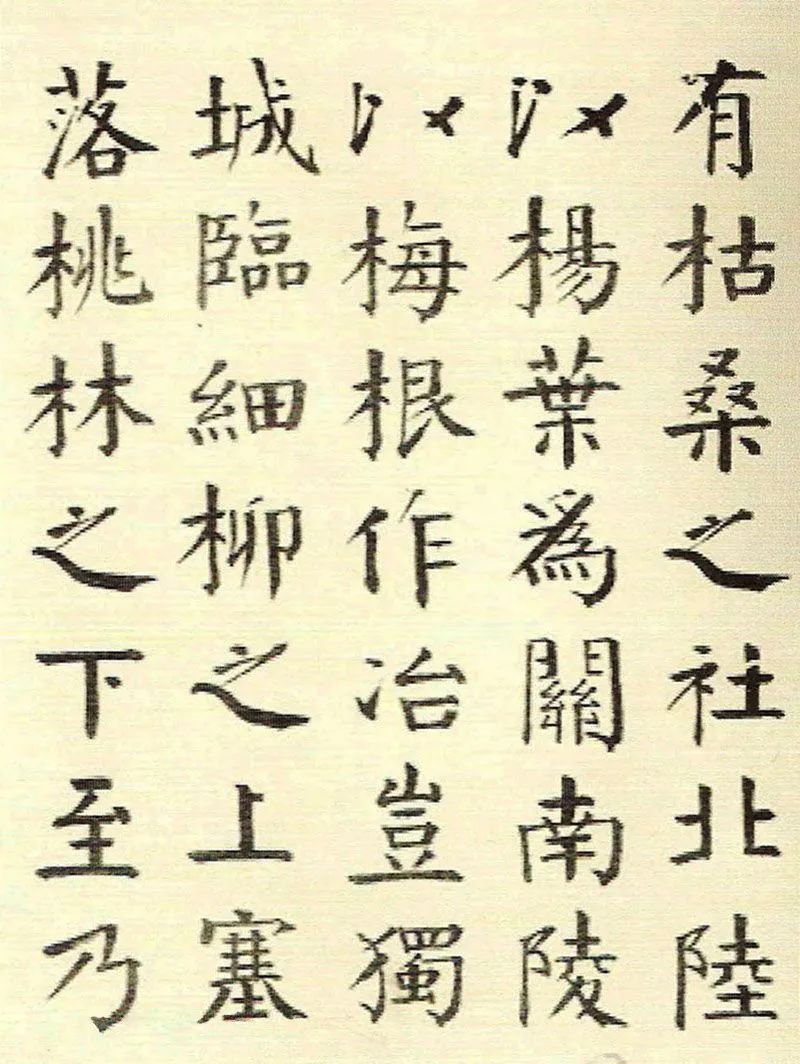 有枯桑之社北陸
以楊葉為關南陵
以梅根作冶豈獨
城臨細柳之上塞
落桃林之下至乃